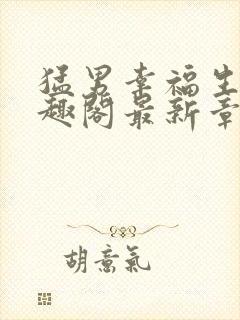 猛男幸福生
趣阁最新章
胡意氣